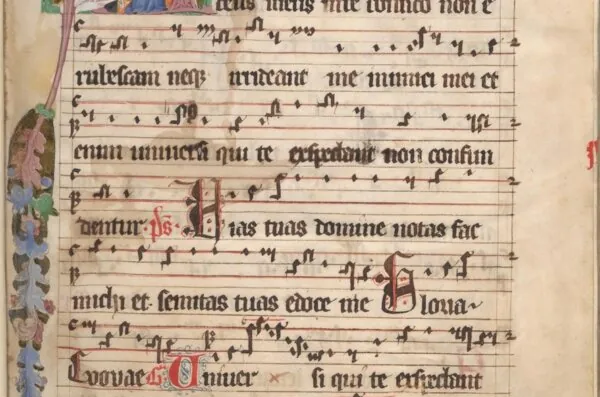 deus meus in te confido non e
rubescam neq irrideant me inimici mei et
enim universi qui te exspectant non confun
dentur ps Vias tuas domine notas fac
michi et semitas tuas edoce me Gloria
Evovae G Univer si qui te exspectant